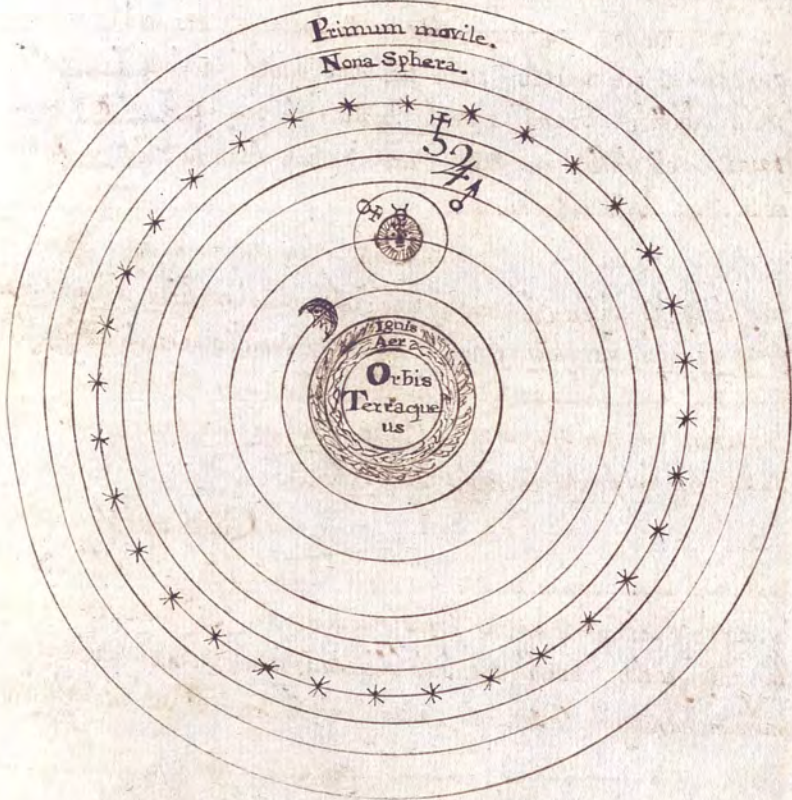 Primum movile.
Nona Sphæra.
♄
♃
♂
♀ ☿
Ignis
Aer
Orbis
Terraque
us